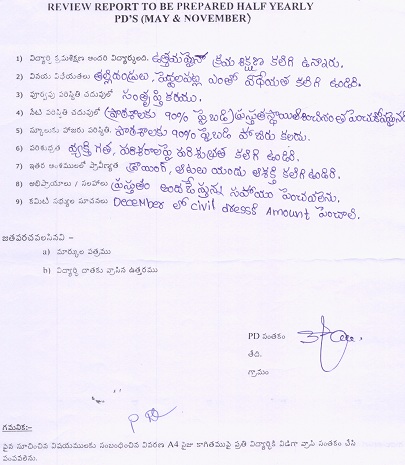 REVIEW REPORT TO BE PREPARED HALF YEARLY
PD'S (MAY & NOVEMBER)
1) విద్యార్థి క్రమశిక్షణ అందరి విద్యార్థులది. ఉత్తమమైన క్రమ శిక్షణ కలిగి ఉన్నారు.
2) వినయ విధేయతలు తల్లిదండ్రులు, పెద్దలపట్ల ఎంతో విధేయత కలిగి ఉండిరి.
3) పూర్వపు పరిస్థితి చదువులో సంతృప్తికరము.
4) నేటి పరిస్థితి చదువులో (పాఠశాలకు 90% పై బడి) ప్రస్తుత
5) స్కూలును హాజరు పరిస్థితి. పాఠశాలకు 90% పైబడి హాజరు కలదు.
6) పరిశుభ్రత వ్యక్తిగత, పరిసరాలపై పరిశుభ్రత కలిగి ఉండిరి.
7) ఇతర అంశములలో ప్రావీణ్యత డ్రాయింగ్, ఆటలు యందు ఆసక్తి కలిగి ఉండిరి.
8) అభిప్రాయాలు / సలహాలు ప్రస్తుతం అందజేస్తున్న సహాయం పెంచవలెను.
9) కమిటీ సభ్యుల సూచనలు December లో civil dressకి Amount పెంచాలి.
జతపరచవలసినవి –
a) మార్కుల పత్రము
b) విద్యార్థి దాతకు వ్రాసిన ఉత్తరము
PD సంతకం
తేది.
గ్రామం
గమనిక:-
పైన సూచించిన విషయములకు సంబంధించిన వివరణ A4 సైజు కాగితముపై ప్రతి విద్యార్థికి విడిగా వ్రాసి సంతకం చేసి
పంపవలెను.